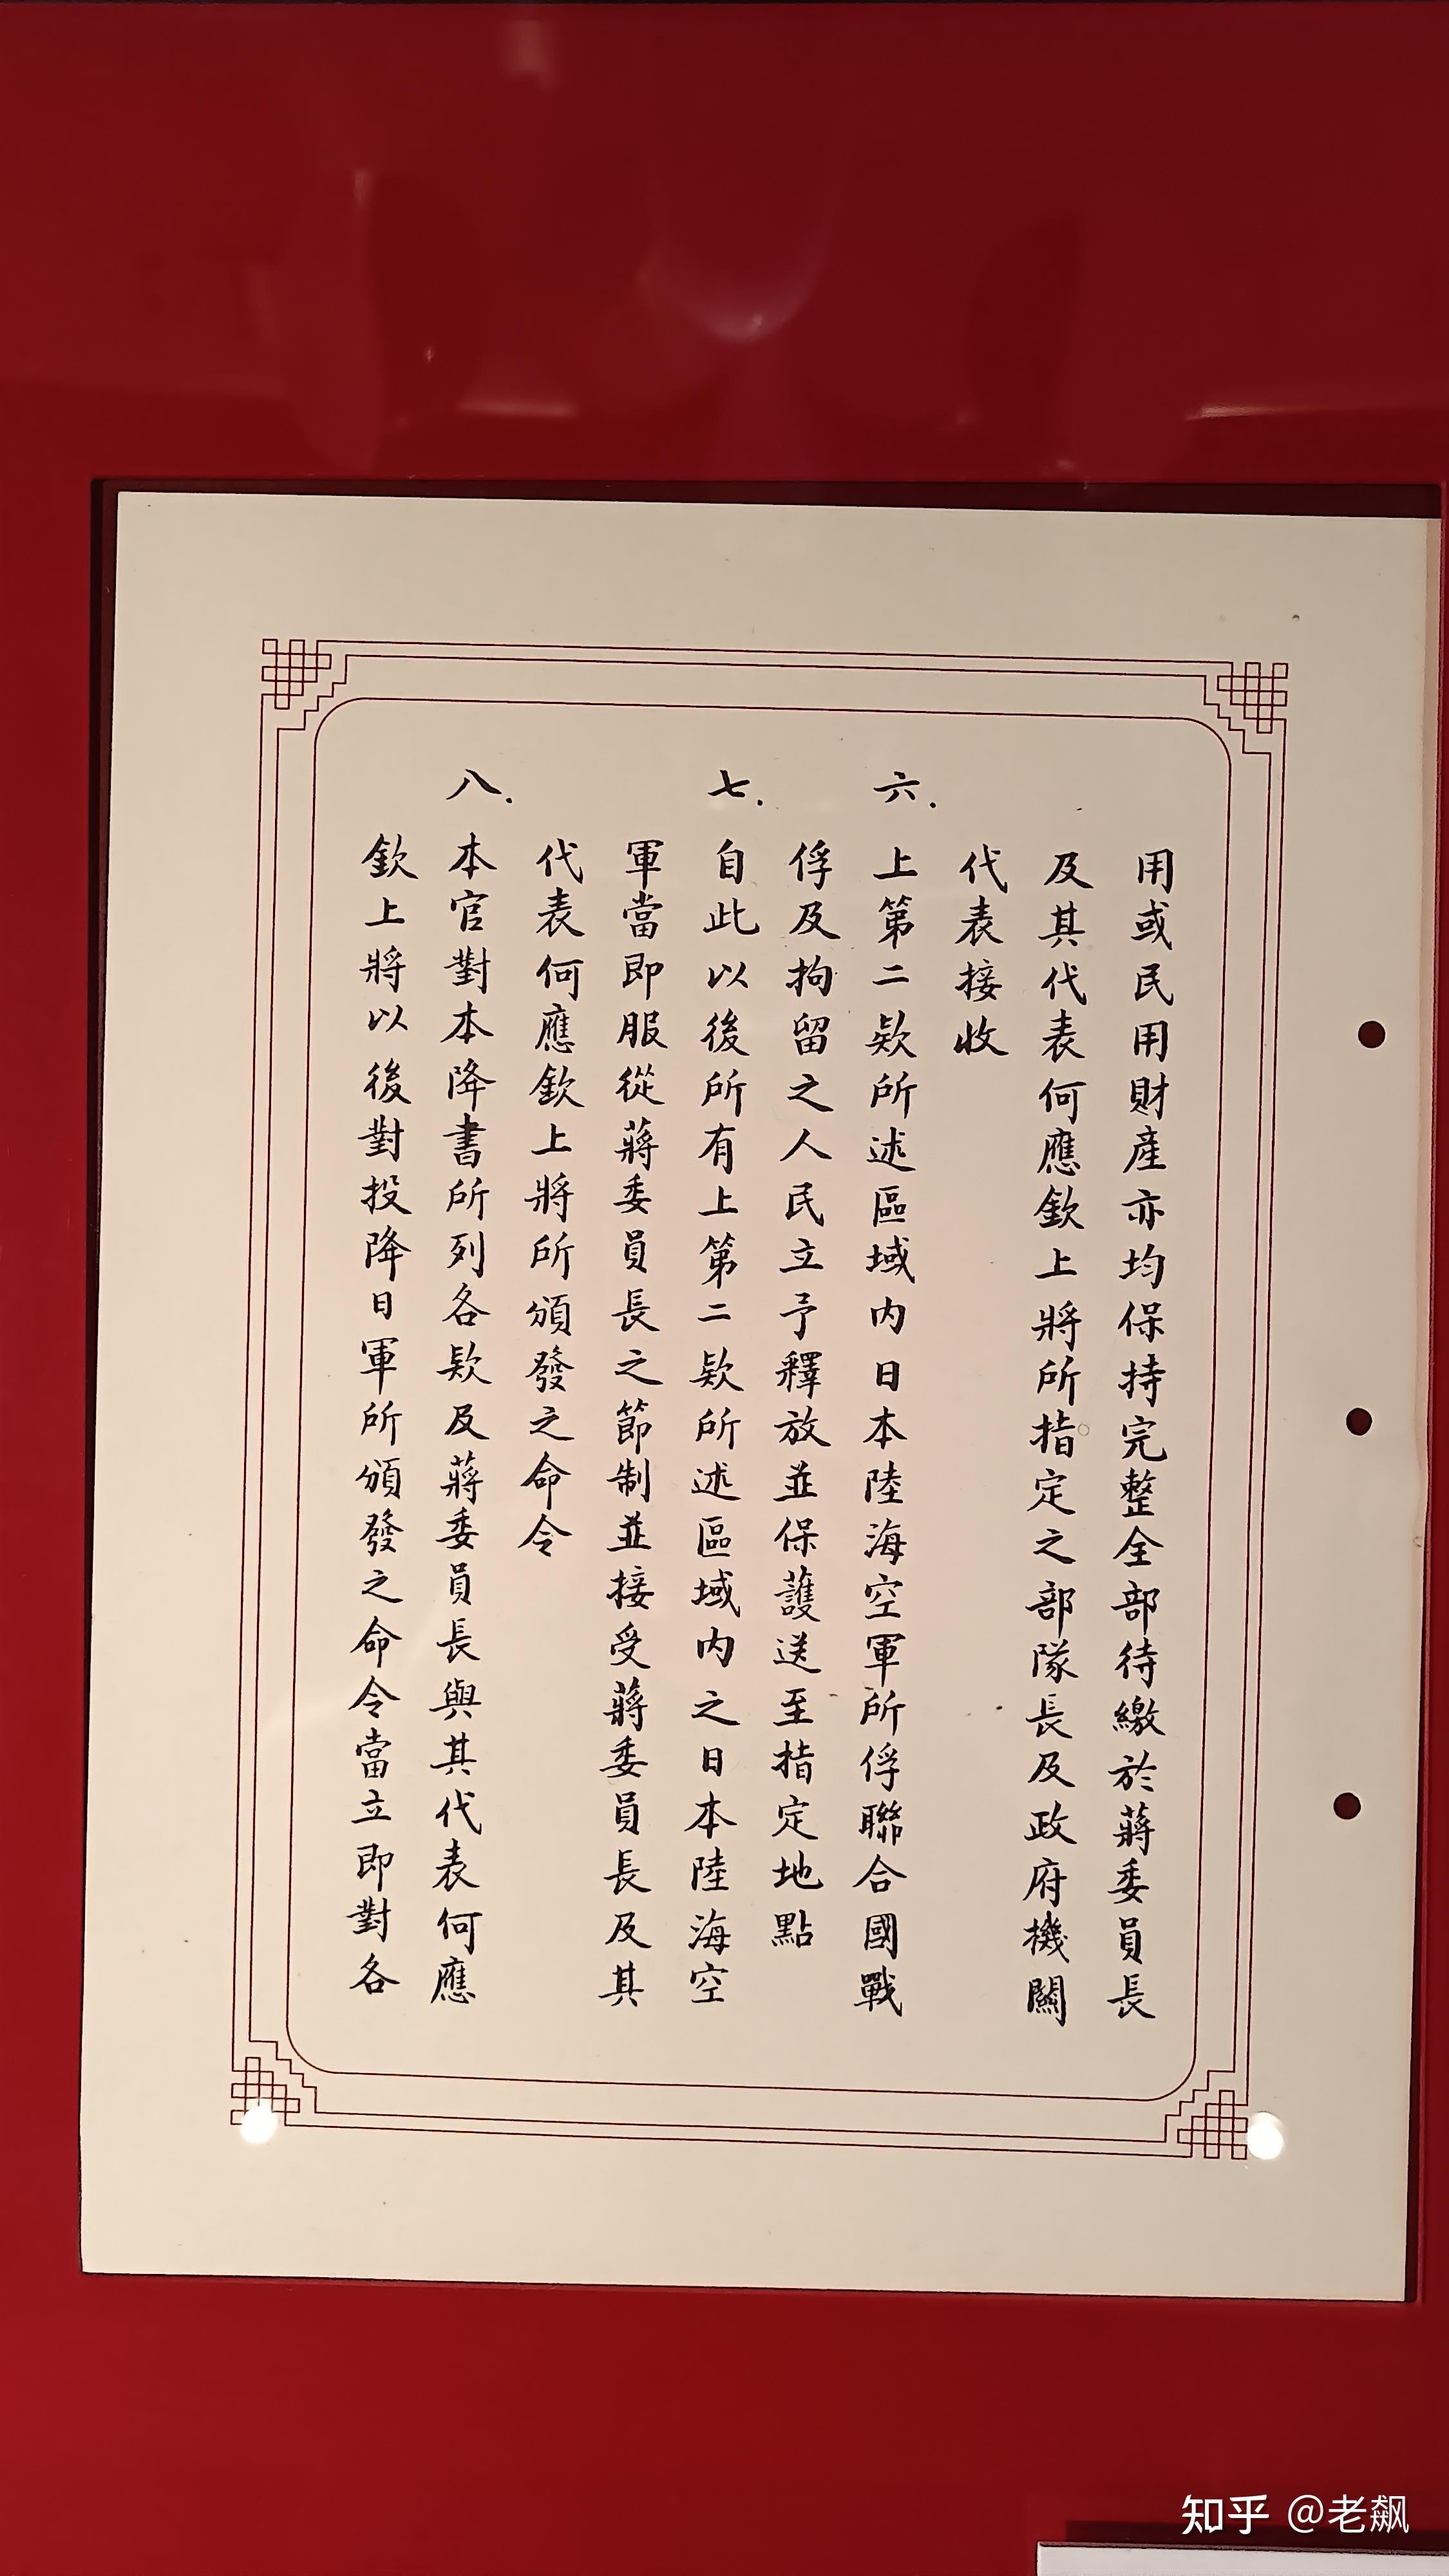 用或民用財産亦均保持完整全部待繳於蔣委員長
及其代表何應欽上將所指定之部隊長及政府機關
代表接收
六.上第二欵所述區域内日本陸海空軍所俘聯合國戰
俘及拘留之人民立予釋放並保護送至指定地點
七.自此以後所有上第二欵所述區域内之日本陸海空
軍當即服從蔣委員長之節制並接受蔣委員長及其
代表何應欽上將所頒發之命令
八.本官對本降書所列各欵及蔣委員長與其代表何應
欽上將以後對投降日軍所頒發之命令當立即對各
知乎 @老飙